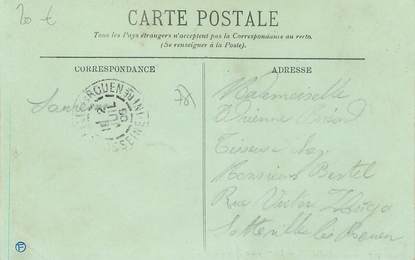 20 €
CARTE POSTALE
Tous les Pays étrangers n'acceptent pas la Correspondance au recto.
(Se renseigner à la Poste).
CORRESPONDANCE
ADRESSE
78)
ROUEN
Mademoiselle
chez
Monsieur
Rue Victor Hugo
Sotteville les Rouen